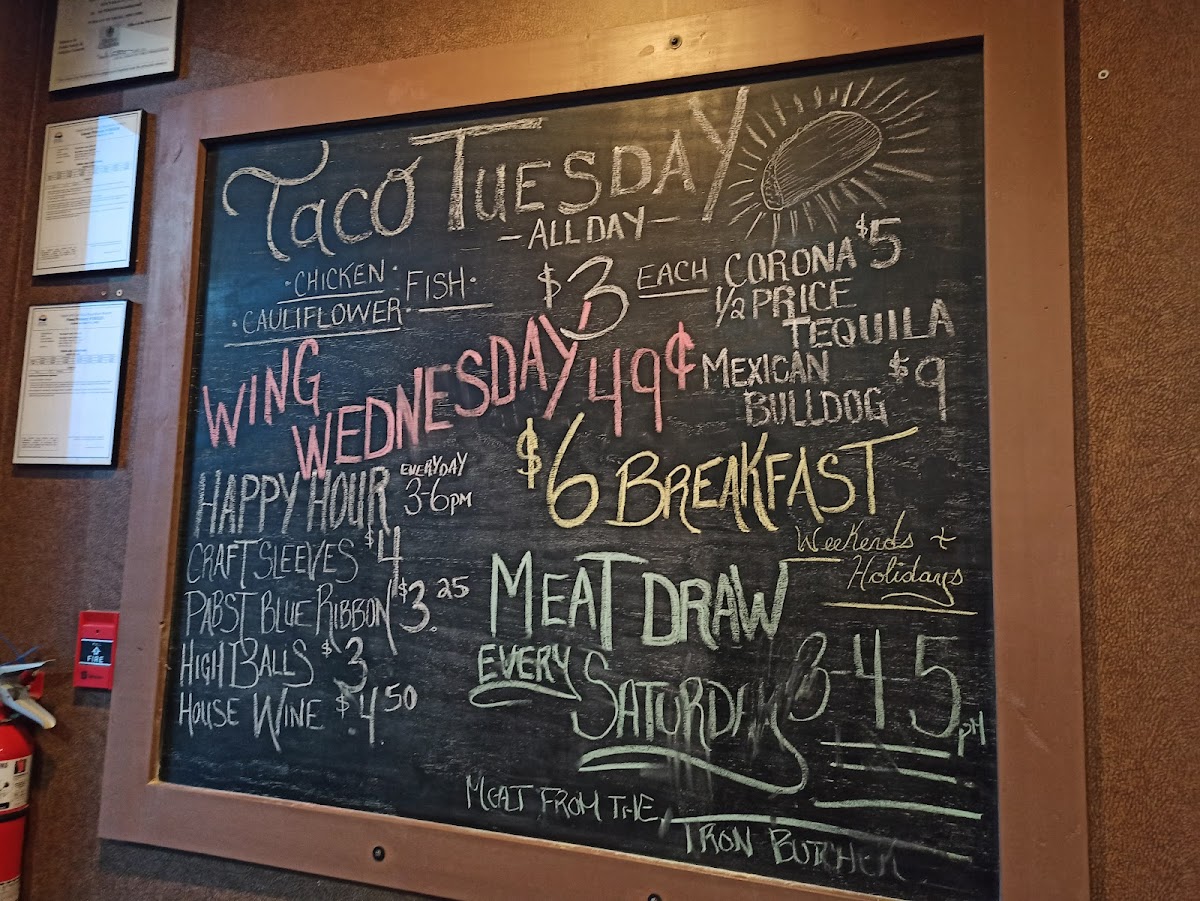 Taco Tuesday
- ALL DAY -
· CHICKEN · FISH ·
· CAULIFLOWER ·
$3 EACH
CORONA $5
1/2 PRICE
TEQUILA
MEXICAN
BULLDOG $9
WING
WEDNESDAY 49¢
$6 BREAKFAST
Weekends +
Holidays
HAPPY HOUR EVERYDAY
3-6pm
CRAFT SLEEVES $4
PABST BLUE RIBBON $3.25
HIGHBALLS $3
HOUSE WINE $4.50
MEAT DRAW
EVERY
SATURDAY 3-4-5 PM
MEAT FROM THE
IRON BUTCHER
FIRE